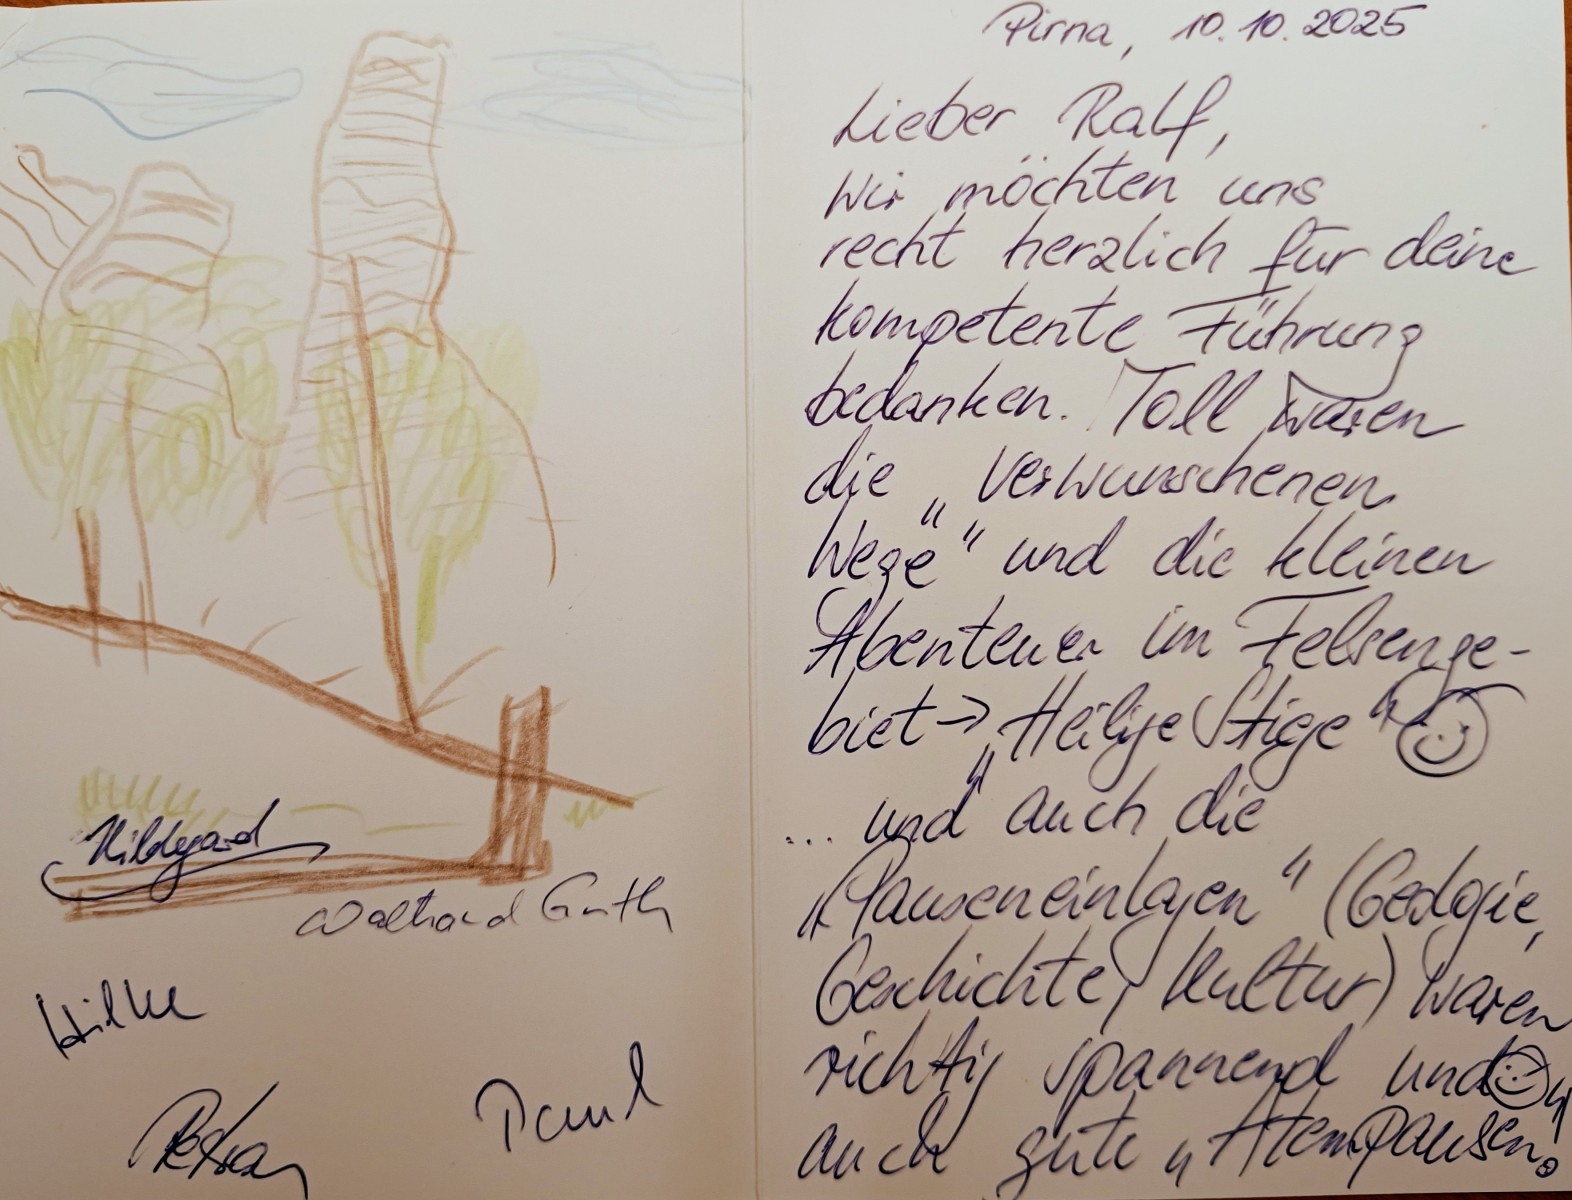 Pirna, 10.10.2025
Lieber Ralf,
wir möchten uns
recht herzlich für deine
kompetente Führung
bedanken. Toll waren
die „Verwunschenen
Wege“ und die kleinen
Abenteuer im Felsenge-
biet → „Heilige Stige“
... und auch die
„Pauseneinlagen“ (Geologie,
Geschichte, Kultur) waren
richtig spannend und
auch gute „Atempausen“.
Hildegard
Walthard Guth
Hilke
Petra
Paul